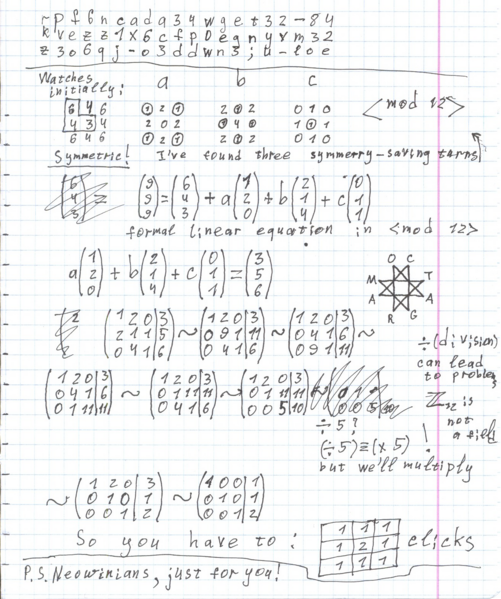 ~pf6ncada34wget32-84
kvezz1x6cfp0eqnyvm32
z3o6qj-o3ddwn3;u-loe
Watches initially:
a b c
6 4 6 ① 2 ① 2 ⓪ 2 0 1 0 <mod 12>
4 3 4 2 0 2 ⓪ 4 ⓪ 1 ① 1
6 4 6 ① 2 ① 2 ⓪ 2 0 1 0
Symmetric! I've found three symmerry-saving turns
(9 9 9) = (6 4 3) + a(1 2 0) + b(2 1 4) + c(0 1 1)
formal linear equation in <mod 12>
a(1 2 0) + b(2 1 4) + c(0 1 1) = (3 5 6)
O C
M T
A A
R G
(1 2 0|3
2 1 1|5
0 4 1|6) ~ (1 2 0|3
0 9 1|11
0 4 1|6) ~ (1 2 0|3
0 4 1|6
0 9 1|11) ~
÷(division)
can lead
to problems
ℤ₁₂ is
not
a field!
(1 2 0|3
0 4 1|6
0 1 11|11) ~ (1 2 0|3
0 1 11|11
0 4 1|6) ~ (1 2 0|3
0 1 11|11
0 0 5|10)
÷5?
(÷5)≡(x5)
but we'll multiply
~ (1 2 0|3
0 1 0|1
0 0 1|2) ~ (1 0 0|1
0 1 0|1
0 0 1|2)
So you have to:
1 1 1
1 2 1
1 1 1
clicks
P.S. Neowinians, just for you!